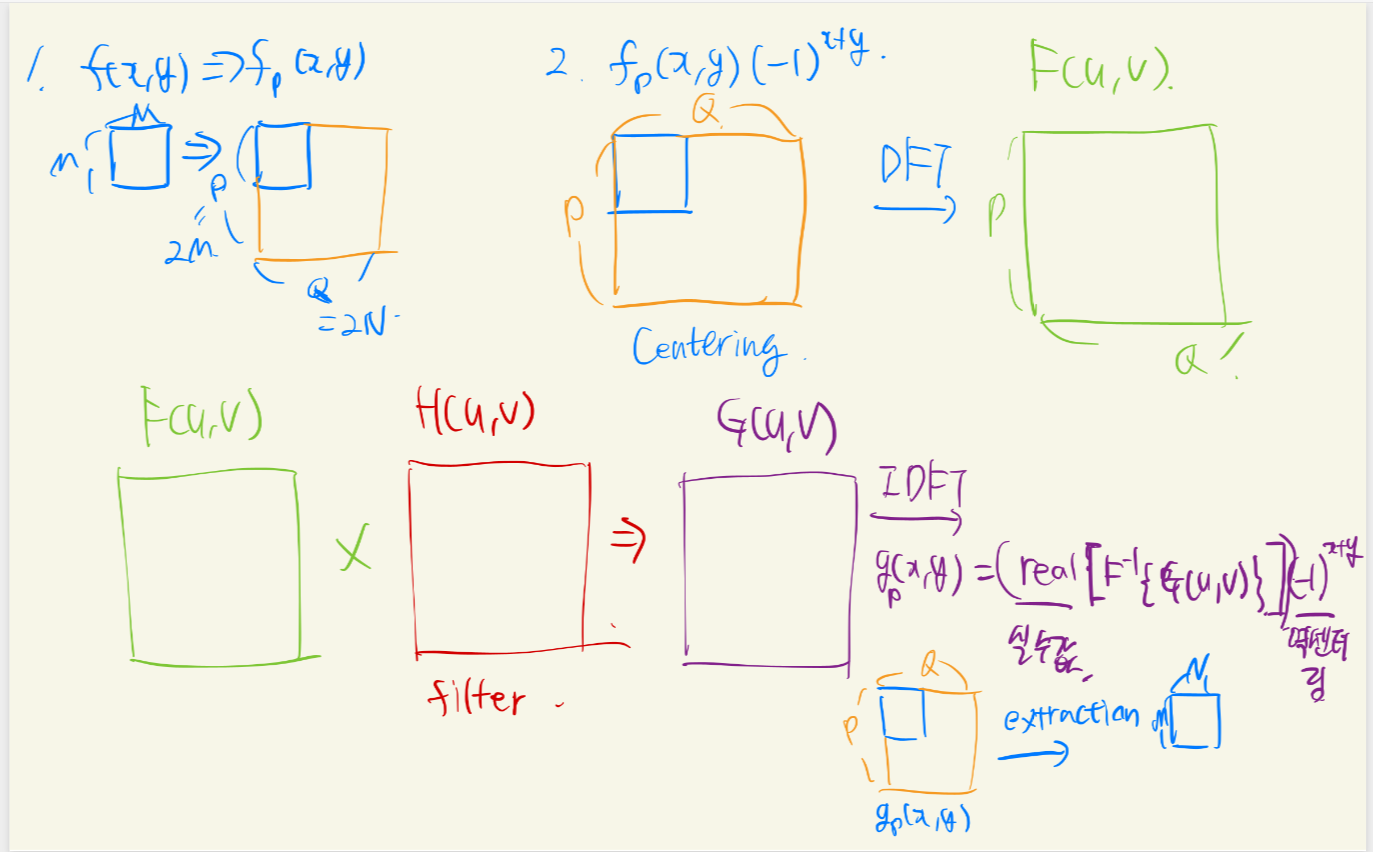 1. f(x,y) ⇒ f_p(x,y)
N
M
⇒
P
=
2M
Q
=2N
2. f_p(x,y)(-1)^{x+y}.
Q
P
Centering.
DFT
→
F(u,v).
P
Q
F(u,v)
×
H(u,v)
filter.
⇒
G(u,v)
IDFT
→
g_p(x,y) = (real[F^{-1}{G(u,v)}])(-1)^{x+y}
실수값
역센터
링
Q
P
g_p(x,y)
extraction
→
N
M